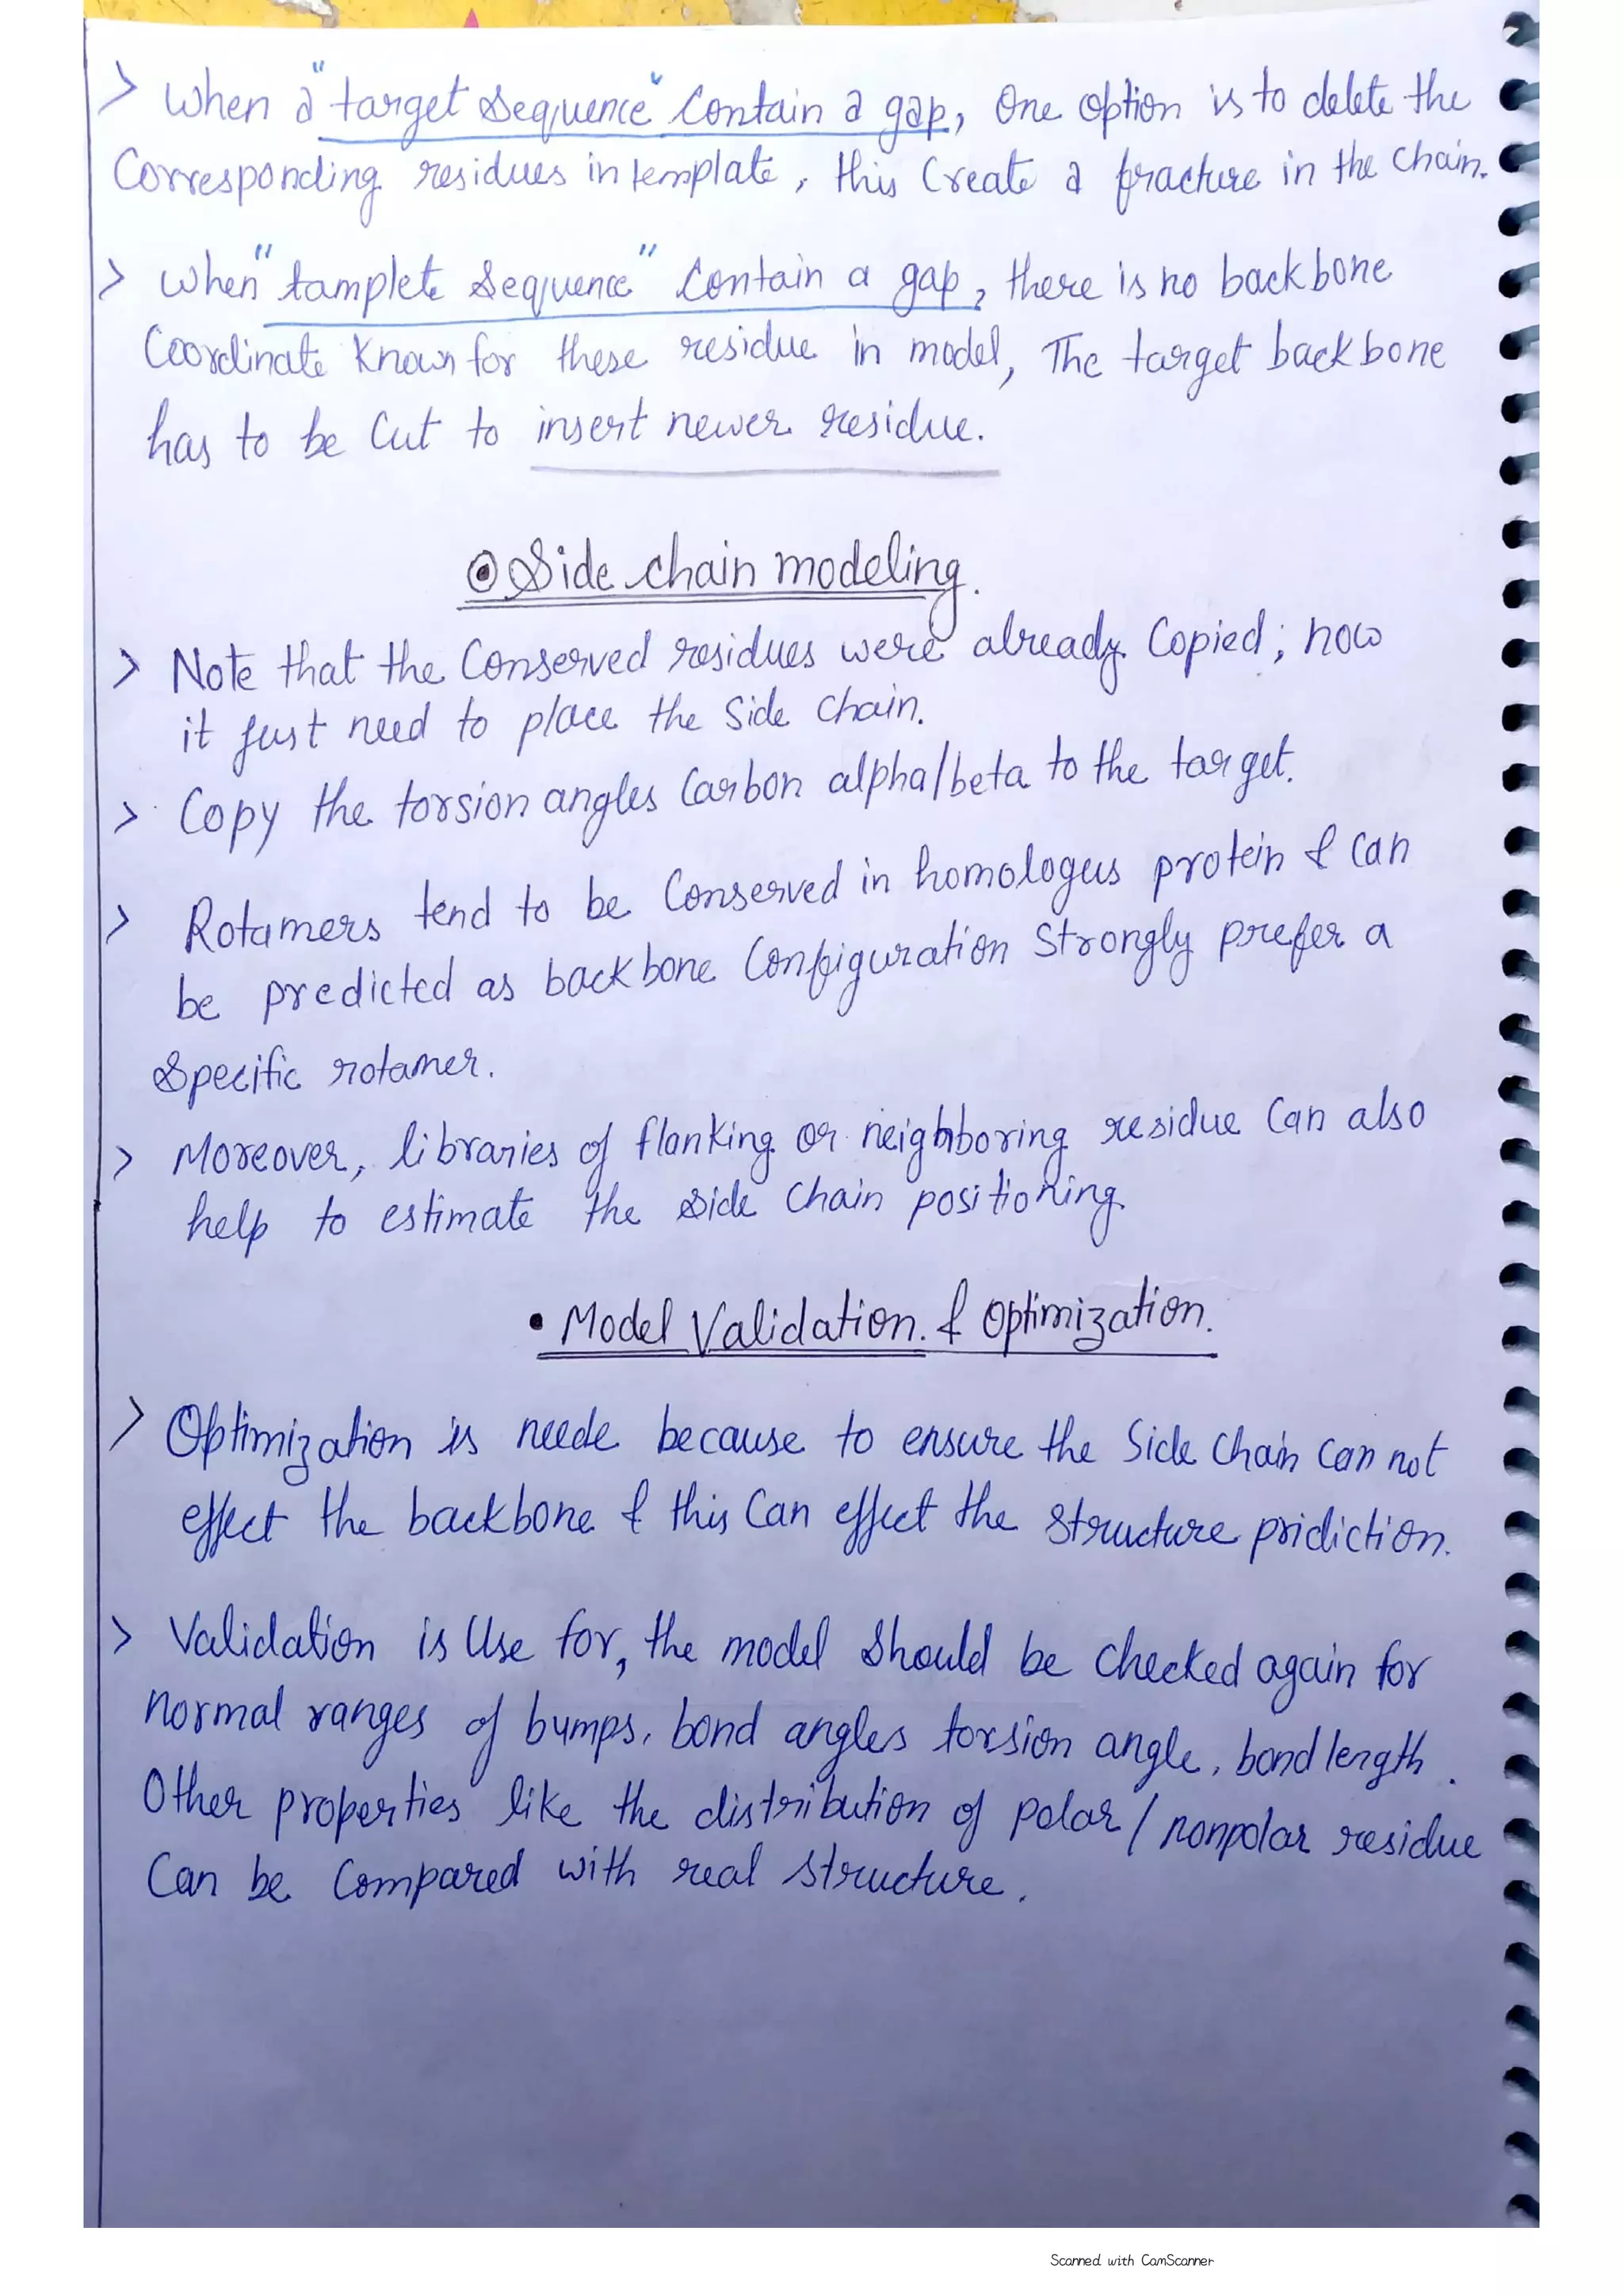 > When a "target Sequence" Contain a gap, One option is to delete the
Corresponding residues in template, this Create a fracture in the Chain.
> When "tamplete Sequence" Contain a gap, there is no backbone
Coordinate Known for these residue in model, The target backbone
has to be Cut to insert newer residue.
⊙ Side chain modeling.
> Note that the Conserved residues were already Copied; now
it just need to place the Side Chain.
> Copy the torsion angles Carbon alpha/beta to the target.
> Rotamers tend to be Conserved in homologus protein & Can
be predicted as backbone Configuration Strongly prefer a
Specific rotamer.
> Moreover, libraries of flanking or neighboring residue Can also
help to estimate the side Chain positioning
• Model Validation. & Optimization.
> Optimization is neede because to ensure the Side Chain Can not
effect the backbone & this Can effect the Structure pridiction.
> Validation is Use for, the model Should be Checked again for
normal ranges of bumps, bond angles torsion angle, bond length.
Other properties like the distribution of polar / nonpolar residue
Can be Compared with real Structure.
Scanned with CamScanner